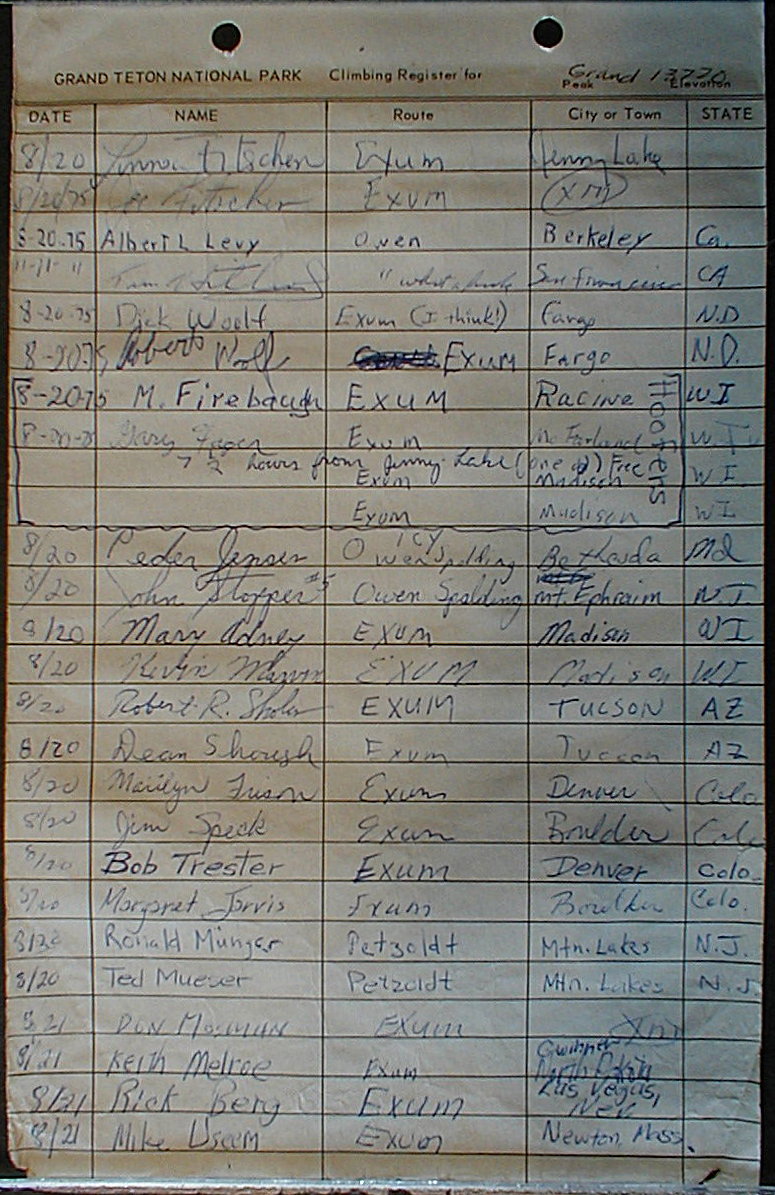 GRAND TETON NATIONAL PARK Climbing Register for Grand 13770
Peak Elevation
DATE NAME Route City or Town STATE
8/20 Exum Jenny Lake
8/20/75 Exum (XM)
8-20-75 Albert L Levy Owen Berkeley Ca.
"-"-" " San Francisco CA
8-20-75 Dick Woolf Exum (I think!) Fargo N.D
8-20-75 Robert Wolf Exum Fargo N.D.
8-20-75 M. Firebaugh Exum Racine WI
Hoofers
8-20-75 Gary Exum McFarland
7 1/2 hours from Jenny Lake (one of) Free
Exum Madison WI
Exum Madison WI
ICY
8/20 Peder Jensen Owen Spalding Bethesda Md
8/20 John Stopper #5 Owen Spalding mt. Ephraim N.J.
8/20 Mary Adney Exum Madison WI
8/20 Kevin Exum Madison WI
8/20 Robert R. EXUM TUCSON AZ
8/20 Dean Exum Tucson AZ
8/20 Marilyn Frison Exum Denver Colo
8/20 Jim Speck Exum Boulder Colo
8/20 Bob Trester Exum Denver Colo.
8/20 Margaret Jarvis Exum Boulder Colo.
8/20 Ronald Munger Petzoldt Mtn. Lakes N.J.
8/20 Ted Mueser Petzoldt Mtn. Lakes N.J.
8/21 Don Exum
Gwinner
8/21 Keith Melroe Exum North Dakota
Las Vegas,
8/21 Rick Berg Exum Nev
8/21 Mike Useem Exum Newton, Mass.